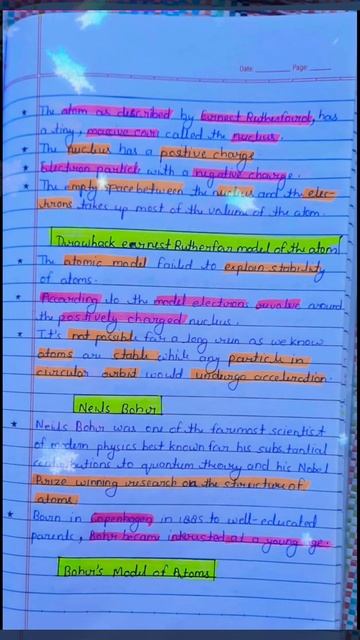 Date: Page:
* The atom as described by Earnect Rutherfaird, has
a tiny, massive core called the nucleus.
* The nucleus has a positive charge
* Electron particle with a negative charge.
* The empty space between the nucleus and the elec-
trons takes up most of the volume of the atom.
Drawback earnest Rutherfar model of the atom
* The atomic model failed to explain stability
of atoms.
* According to the model electrons revolve around
the positively charged nucleus.
* It's not possible for a long run as we know
atoms are stable while any particle in
circular orbit would undergo acceleration.
Neils Bohr
* Neils Bohr was one of the foremost scientist
of modern physics best known for his substantial
contributions to quantum theory and his Nobel
Prize winning research on the structure of
atoms
* Born in Copenhagen in 1885 to well-educated
parents, Bohr became interested at a young age.
Bohr's Model of Atoms